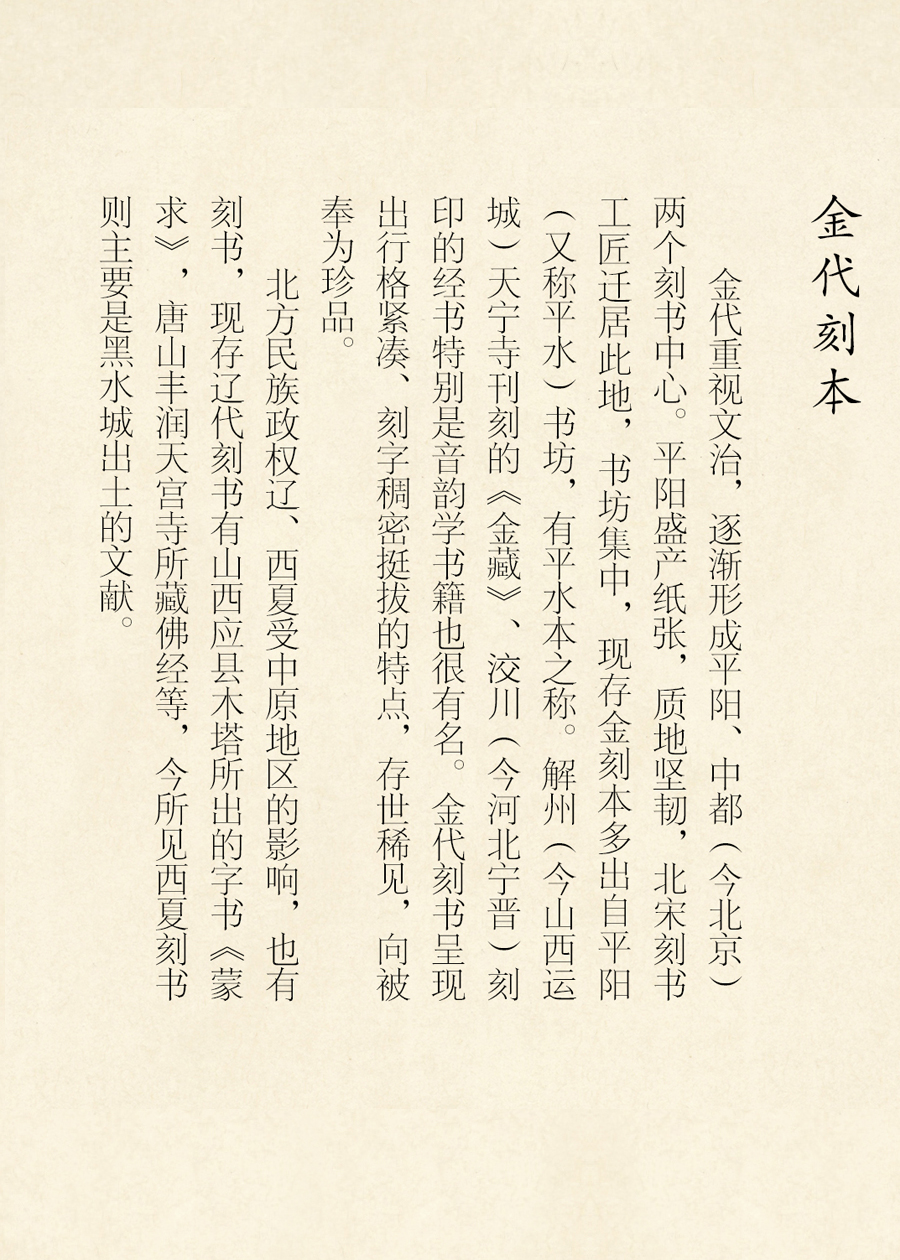 金代刻本
金代重视文治，逐渐形成平阳、中都（今北京）
两个刻书中心。平阳盛产纸张，质地坚韧，北宋刻书
工匠迁居此地，书坊集中，现存金刻本多出自平阳
（又称平水）书坊，有平水本之称。解州（今山西运
城）天宁寺刊刻的《金藏》、洨川（今河北宁晋）刻
印的经书特别是音韵学书籍也很有名。金代刻书呈现
出行格紧凑、刻字稠密挺拔的特点，存世稀见，向被
奉为珍品。
北方民族政权辽、西夏受中原地区的影响，也有
刻书，现存辽代刻书有山西应县木塔所出的字书《蒙
求》，唐山丰润天宫寺所藏佛经等，今所见西夏刻书
则主要是黑水城出土的文献。